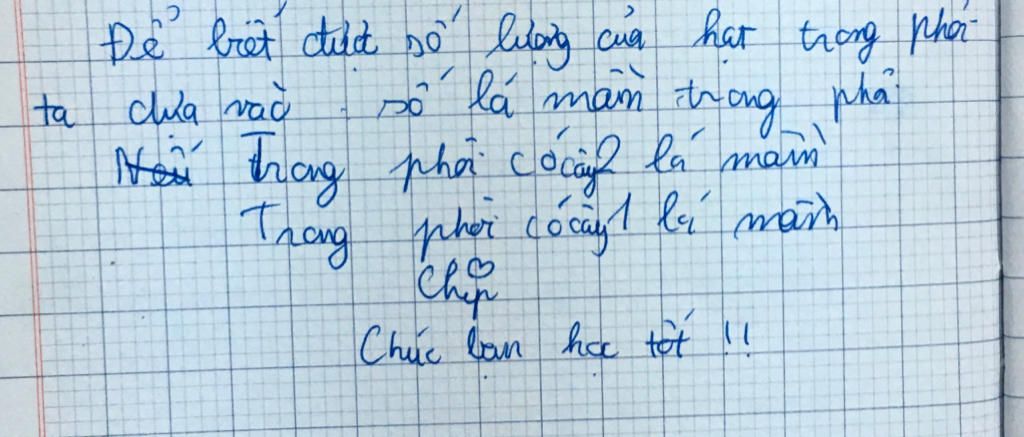 Để biết được số lượng của hạt trong phôi
ta dựa vào số lá mầm trong phôi
Nếu Trong phôi có cây 2 lá mầm
Trong phôi có cây 1 lá mầm
Chip
Chúc bạn học tốt !!